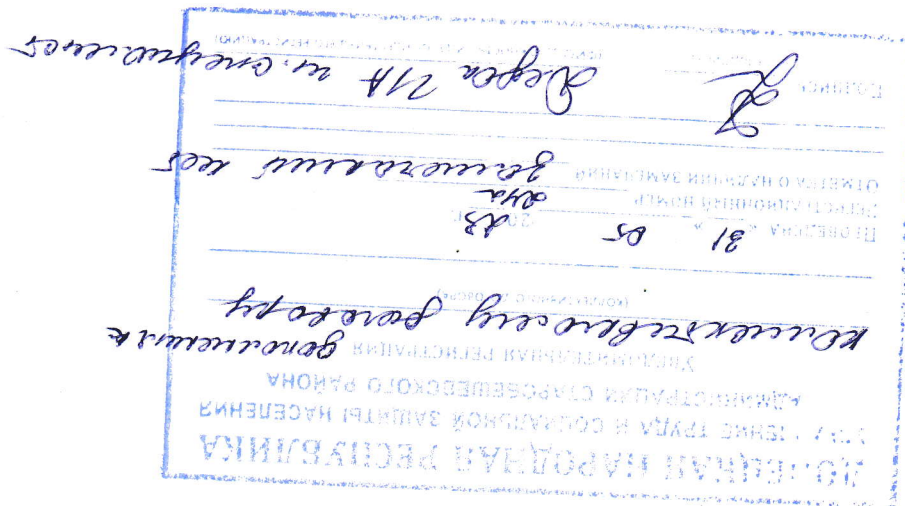 ДОНЕЦКАЯ НАРОДНАЯ РЕСПУБЛИКА
УПРАВЛЕНИЕ ТРУДА И СОЦИАЛЬНОЙ ЗАЩИТЫ НАСЕЛЕНИЯ
АДМИНИСТРАЦИИ СТАРОБЕШЕВСКОГО РАЙОНА
УВЕДОМИТЕЛЬНАЯ РЕГИСТРАЦИЯ дополнения к
коллективному договору
(КОЛЛЕКТИВНОГО ДОГОВОРА)
ПРОВЕДЕНА « 31 » 05 2023 г.
РЕГИСТРАЦИОННЫЙ НОМЕР 24а
ОТМЕТКА О НАЛИЧИИ ЗАМЕЧАНИЙ замечаний нет
ПОДПИСЬ